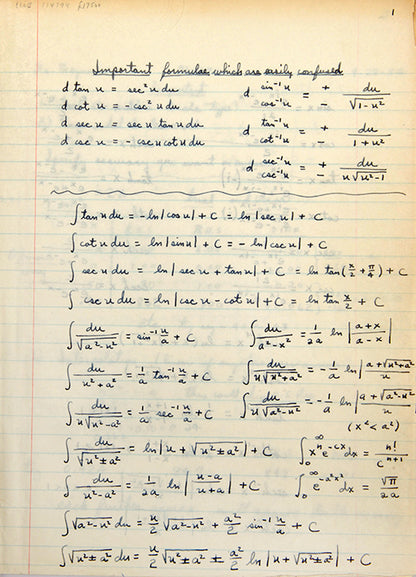 1
Important formulae which are easily confused
d tan u = sec² u du
d cot u = -csc² u du
d sec u = sec u tan u du
d csc u = - csc u cot u du
d sin⁻¹u / cos⁻¹u = +/- du/√(1-u²)
d tan⁻¹u / cot⁻¹u = +/- du/(1+u²)
d sec⁻¹u / csc⁻¹u = +/- du/(u√(u²-1))
∫ tan u du = -ln|cos u| + C = ln|sec u| + C
∫ cot u du = ln|sin u| + C = - ln|csc u| + C
∫ sec u du = ln|sec u + tan u| + C = ln tan(x/2 + π/4) + C
∫ csc u du = ln|csc u - cot u| + C = ln tan x/2 + C
∫ du/√(a²-u²) = sin⁻¹ u/a + C
∫ du/(a²-x²) = 1/2a ln|(a+x)/(a-x)|
∫ du/(u²+a²) = 1/a tan⁻¹ u/a + C
∫ du/(u√(u²+a²)) = -1/a ln|(a+√(u²+a²))/u
∫ du/(u√(u²-a²)) = 1/a sec⁻¹ u/a + C
∫ du/(u√(a²-u²)) = -1/a ln|(a+√(a²-u²))/u
(x²<a²)
∫ du/√(u²±a²) = ln|u + √(u²±a²)| + C
∫₀^∞ xⁿe^(-cx) dx = n!/cⁿ⁺¹
∫ du/(u²-a²) = 1/2a ln|(u-a)/(u+a)| + C
∫₀^∞ e^(-a²x²) dx = √π/2a
∫√(a²-u²) du = u/2 √(a²-u²) + a²/2 sin⁻¹ u/a + C
∫√(u²±a²) du = u/2 √(u²±a²) ± a²/2 ln|u+√(u²±a²)| + C